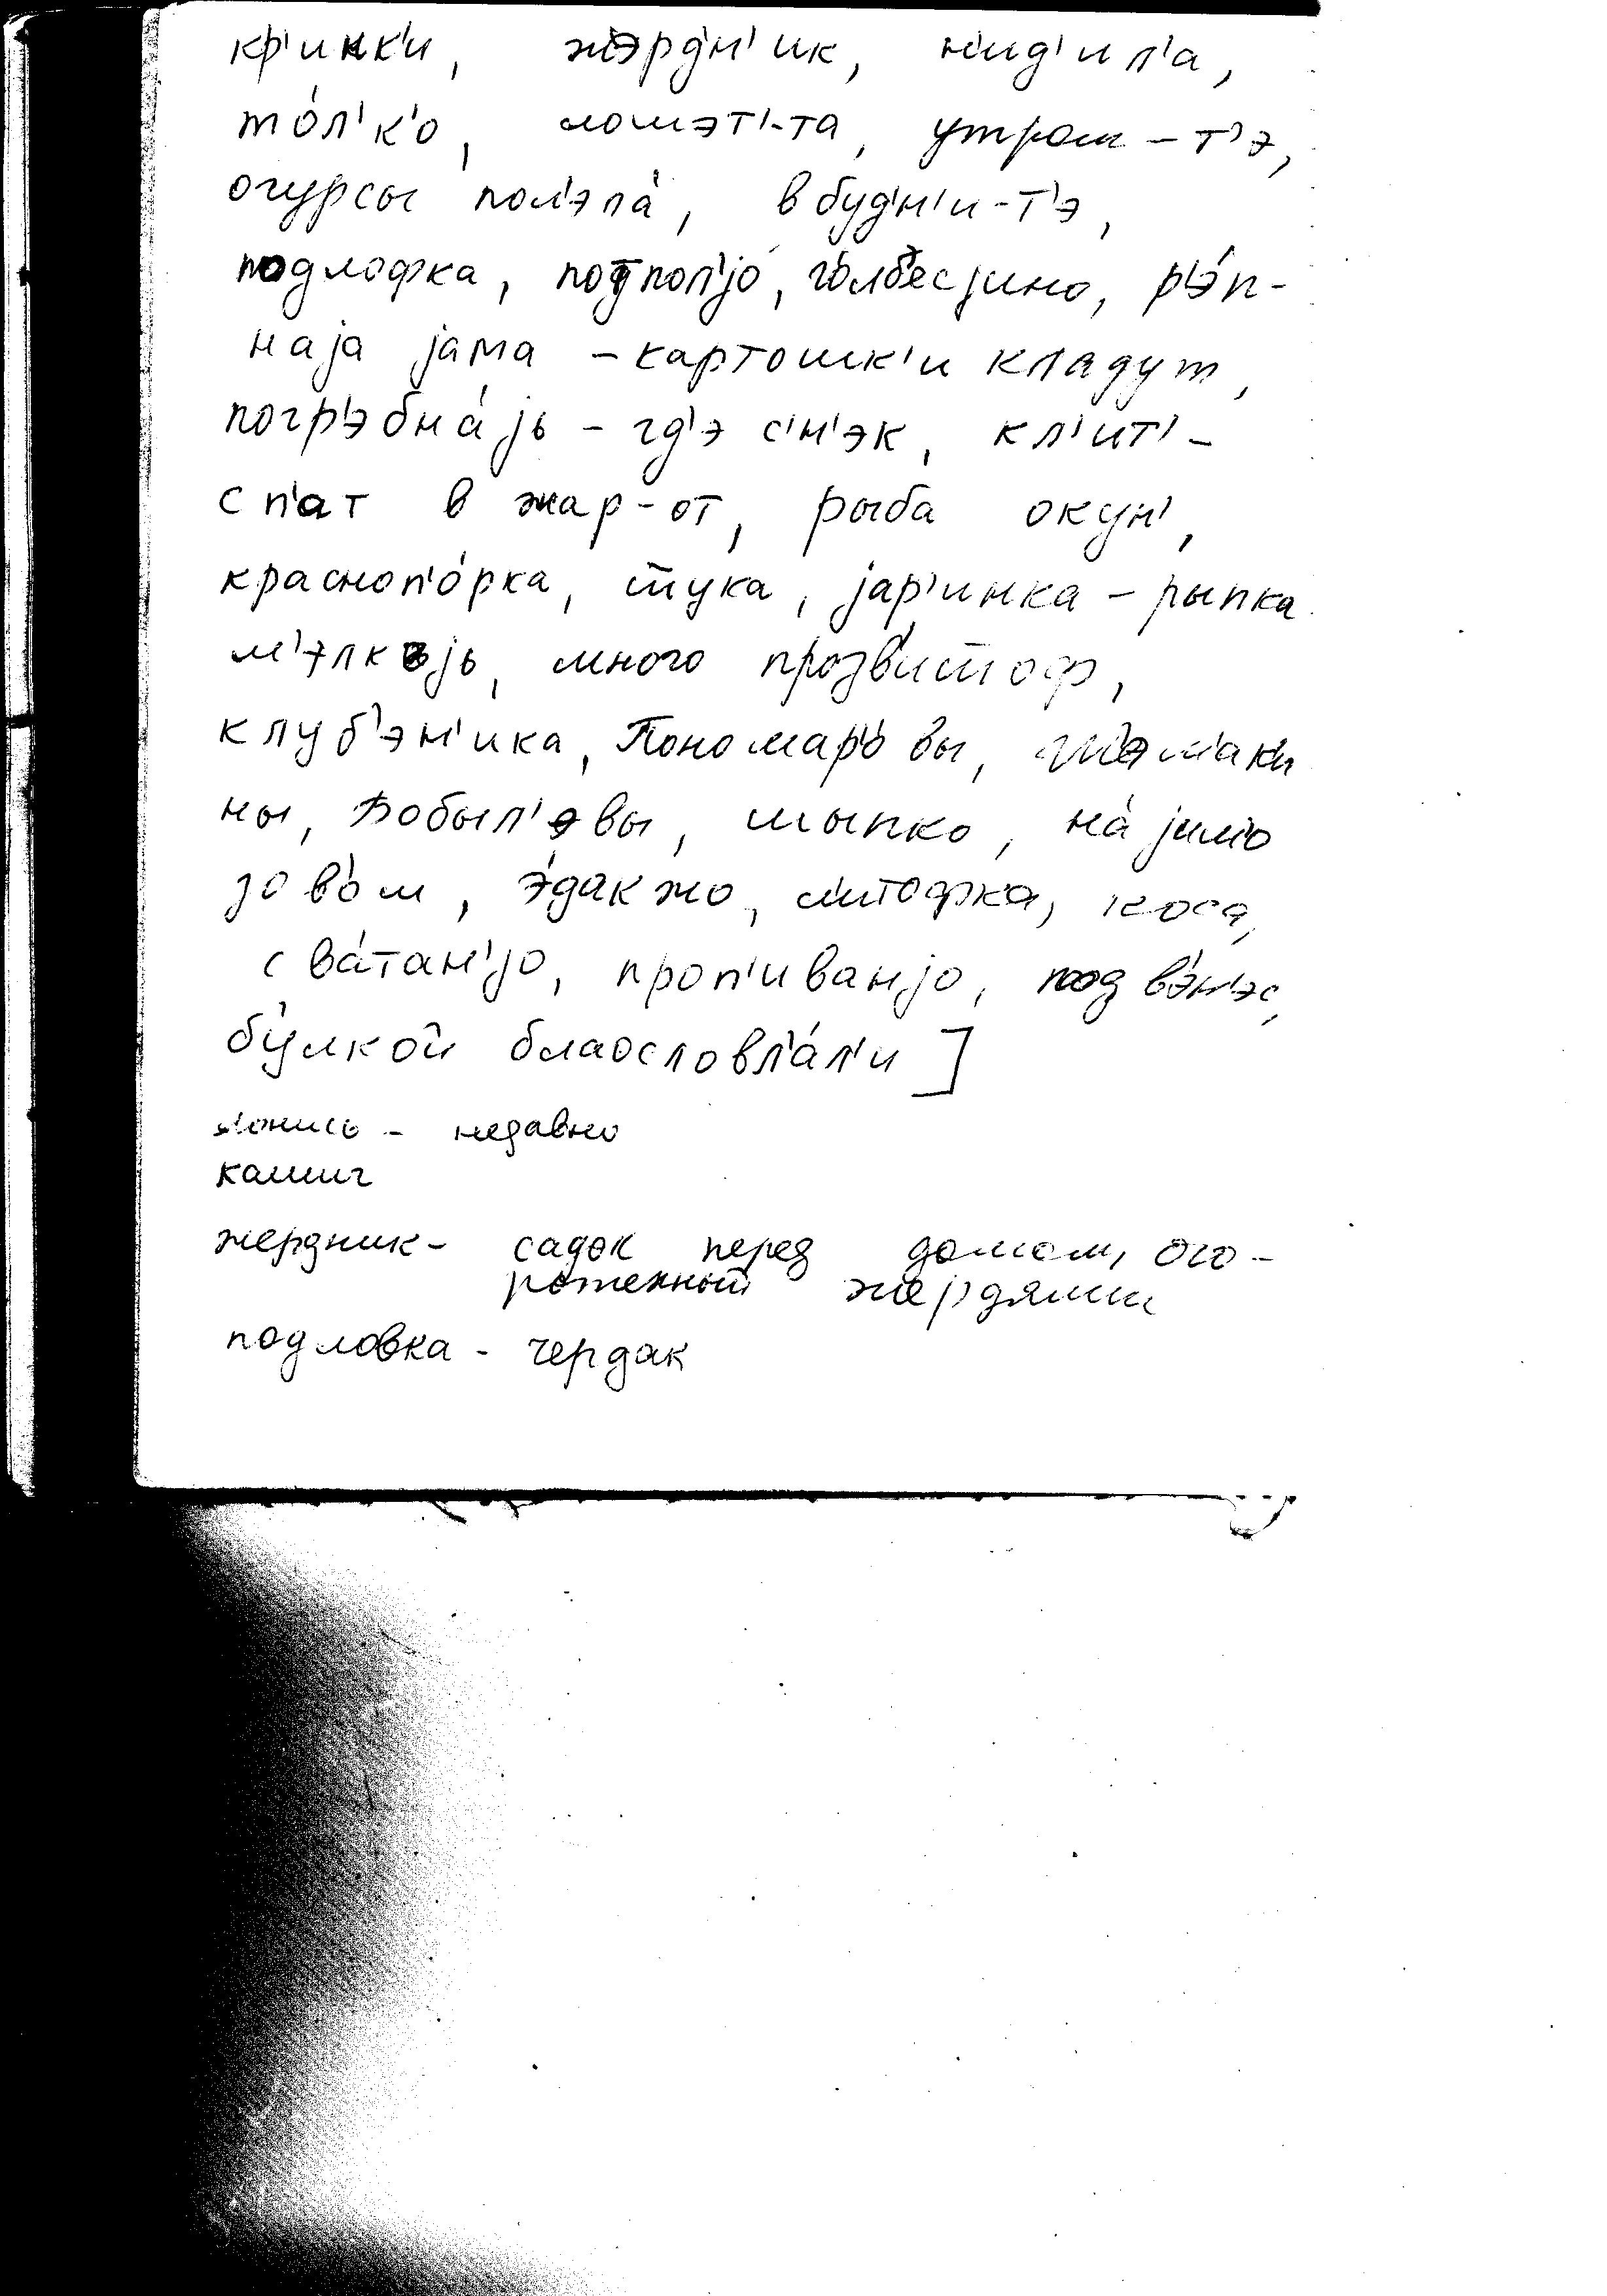 кр'инк'и, жэрд'н'ик, н'ид'ил'а,
то́л'к'о, ломэт'-та, утром-т'э,
огурсы пол'эла́, в буд'н'и-т'э,
подлофка, потпол'jо, го́лбэсjино, р'э́п-
наjа jама - картошк'и кладут,
погр'эбна́jъ - гд'э с'н'эк, кл'ит' -
сп'ат в жар-от, рыба окун',
красноп'о́рка, щука, jар'инка - рыпка
м'элкъjъ, много прозв'ищоф,
клуб'эн'ика, Пономар'о́вы,
ны, Бобыл'эвы, шыпко, на́ jим'о
зов'о́м, э́дак жо, л'итофка, коса,
сва́тан'jо, проп'иванjо, под в'эн'эс,
бу́лкой блаословл'а́л'и]
лонись - недавно
камиг
жердник - садок перед домом, ого-
роженный жердями
подловка - чердак